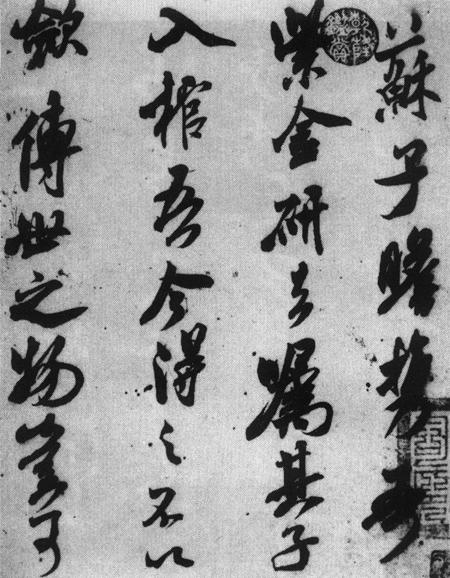 蘇子瞻携吾
紫金研去嘱其子
入棺吾今得之不以
歛傳世之物豈可